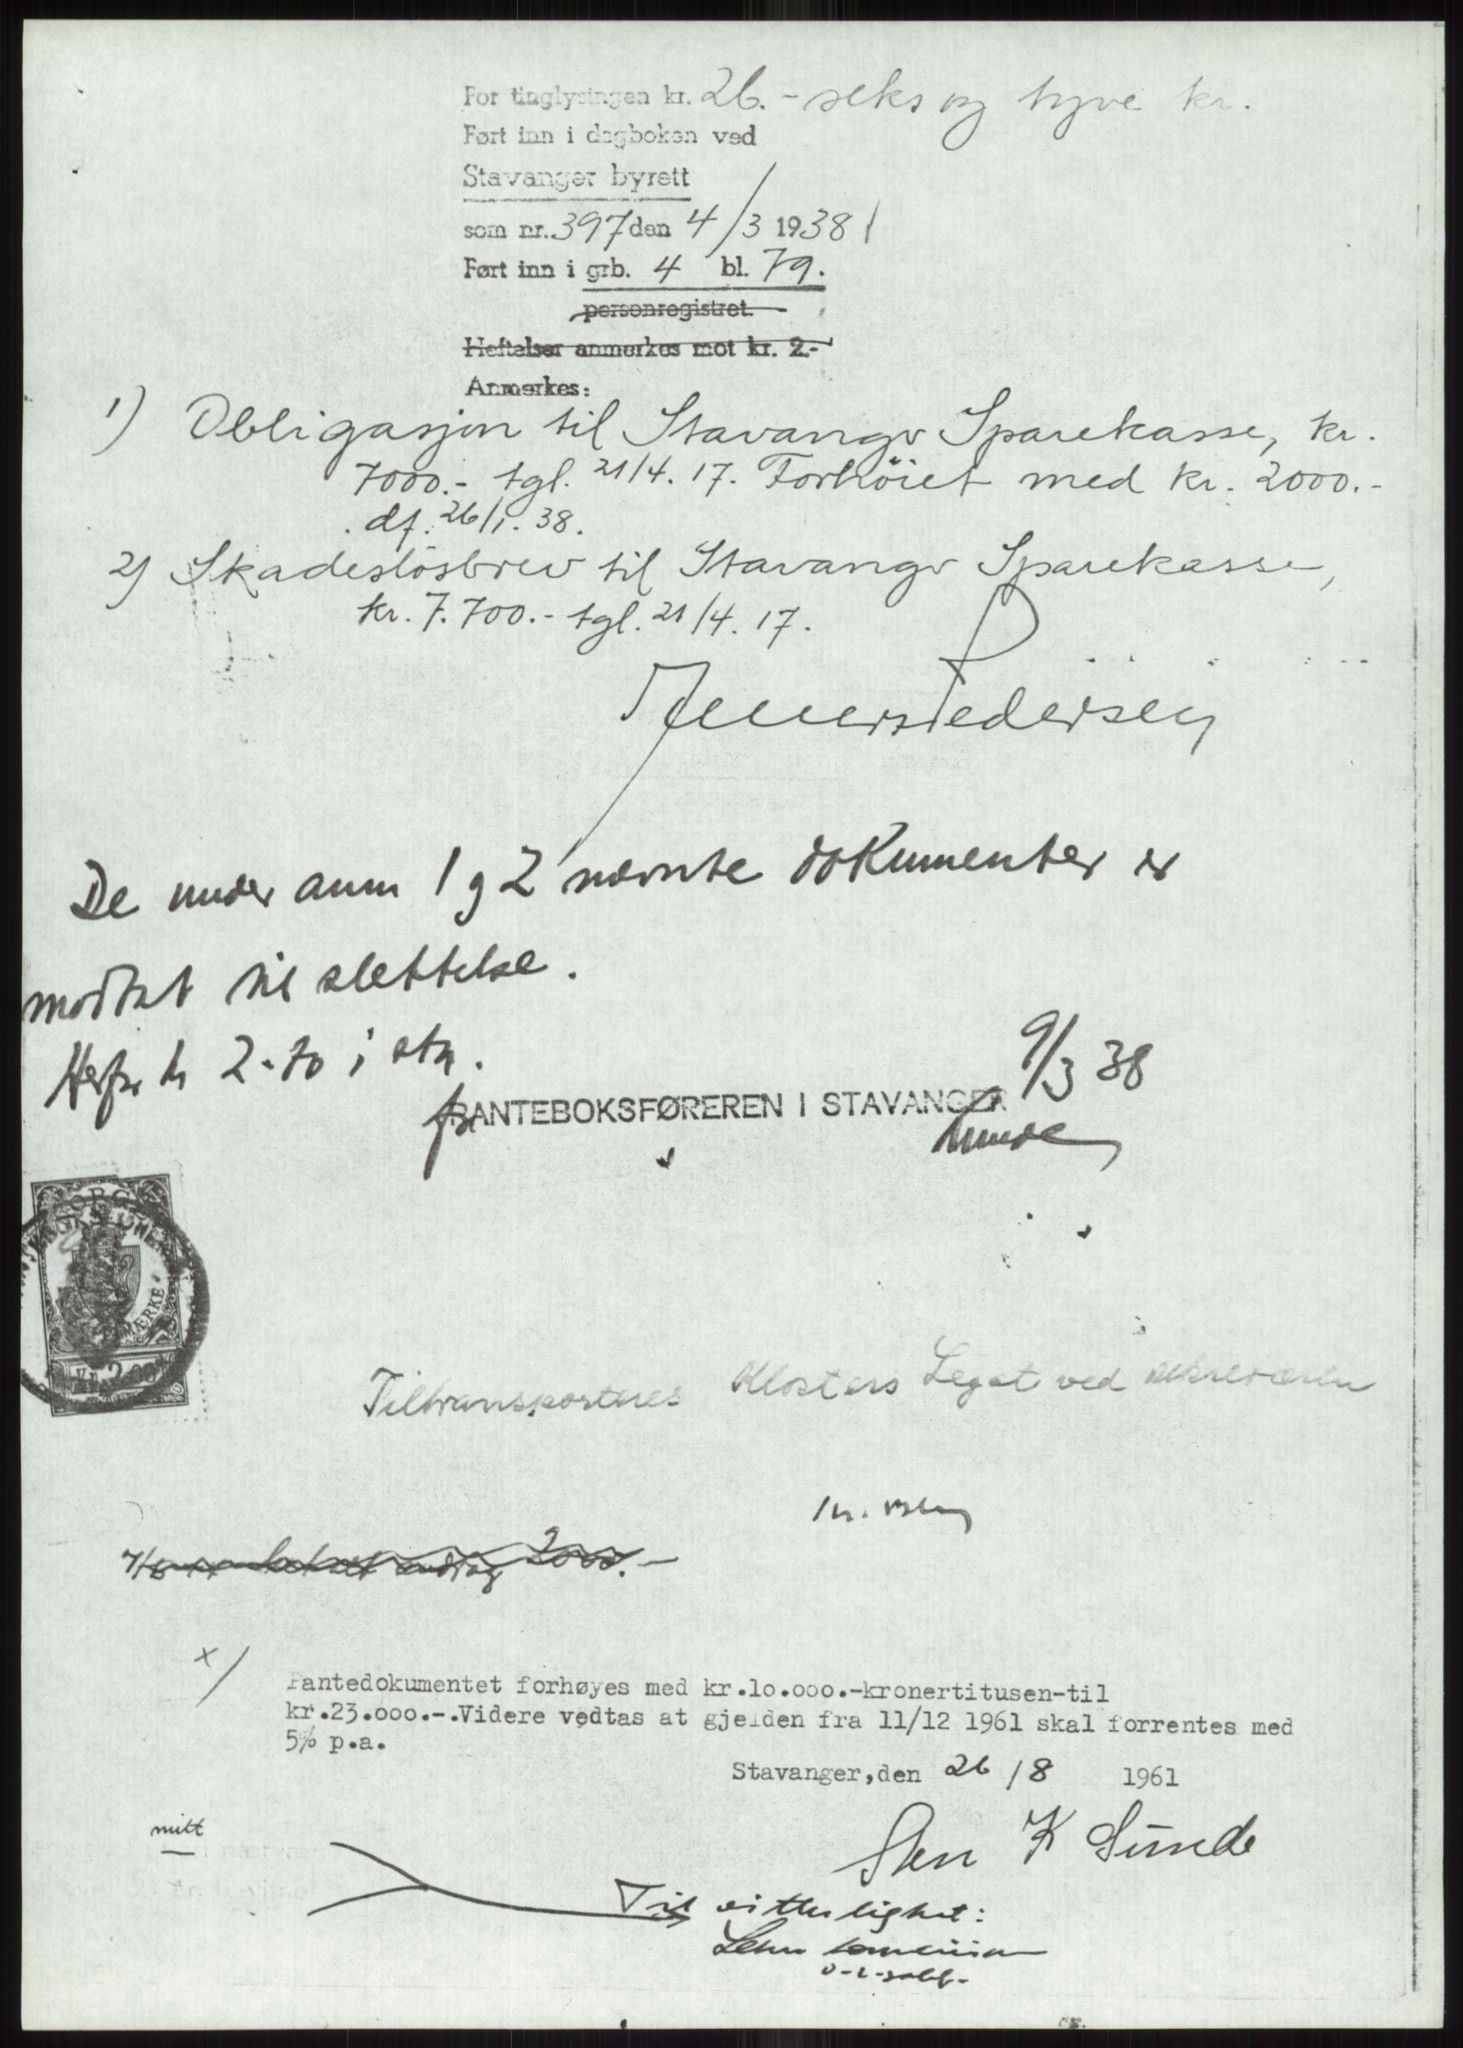 For tinglysingen kr. 26.- seks og tyve kr.
Ført inn i dagboken ved
Stavanger byrett
som nr. 397 den 4/3 1938
Ført inn i grb. 4 bl. 79.
personregistret.
Heftelser anmerkes mot kr. 2.-
Anmerkes:
1) Obligasjon til Stavanger Sparekasse, kr.
7000.- tgl. 21/4. 17. Forhöiet med kr. 2000.-
df. 26/1. 38.
2) Skadeslösbrev til Stavanger Sparekasse,
kr. 7.700.- tgl. 21/4. 17.
Pedersen
De under anm 1 og 2 nevnte dokumenter er
mottat til slettelse.
2.70 i stm.
9/3 38
fr PANTEBOKSFØREREN I STAVANGER
Lunde
NORGE
MÆRKE
Kr. 2.00
Tiltransporteres Klosters Legat ved
2000.-
x/
Pantedokumentet forhøyes med kr.10.000.-kronertitusen-til
kr.23.000.-.Videre vedtas at gjelden fra 11/12 1961 skal forrentes med
5% p.a.
Stavanger,den 26/8 1961
mitt
K Sunde
Til vitterlighet: